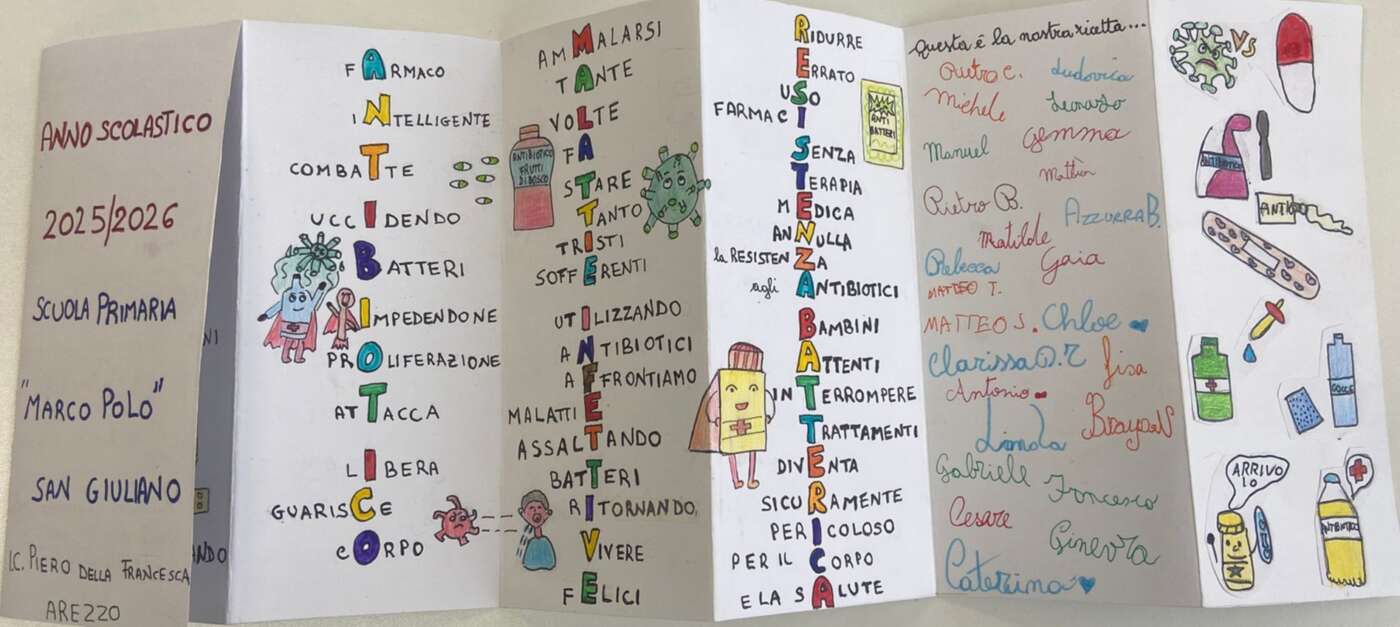 ANNO SCOLASTICO
2025/2026
SCUOLA PRIMARIA
"MARCO POLO"
SAN GIULIANO
I.C. PIERO DELLA FRANCESCA
AREZZO
NI
NDO
FARMACO
INTELLIGENTE
COMBATTE
UCCIDENDO
BATTERI
IMPEDENDONE
PROLIFERAZIONE
ATTACCA
LIBERA
GUARISCE
CORPO
AMMALARSI
TANTE
VOLTE
FA
STARE
TANTO
TRISTI
SOFFERENTI
UTILIZZANDO
ANTIBIOTICI
AFFRONTIAMO
MALATTIE
ASSALTANDO
BATTERI
RITORNANDO,
VIVERE
FELICI
ANTIBIOTICO
FRUTTI
DI BOSCO
RIDURRE
ERRATO
USO
FARMACI
SENZA
TERAPIA
MEDICA
ANNULLA
la RESISTENZA
agli ANTIBIOTICI
BAMBINI
ATTENTI
INTERROMPERE
TRATTAMENTI
DIVENTA
SICURAMENTE
PERICOLOSO
PER IL CORPO
E LA SALUTE
ANTI
BATTERI
Questa è la nostra ricetta...
Pietro C. Ludovica
Michele Leonardo
Manuel Gemma
Mathìas
Pietro B. AZZURRA B.
Matilde
Rebecca Gaia
MATTEO T.
MATTEO S. Chloe
Clarissa D.R Lisa
Antonio
Linda Brayan
Gabriele Francesco
Cesare Ginevra
Caterina
VS
ANTIBIOTICO
ANTIBIO
GOCCE
ARRIVO
LO
ANTIBIOTICO